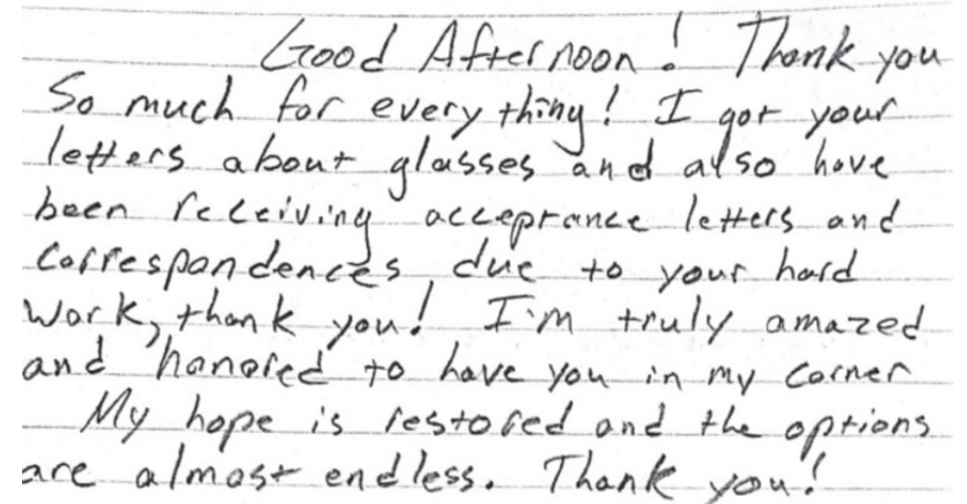 Good Afternoon! Thank you
So much for everything! I got your
letters about glasses and also have
been receiving acceptance letters and
correspondences due to your hard
work, thank you! I'm truly amazed
and honored to have you in my corner
My hope is restored and the options
are almost endless. Thank you!